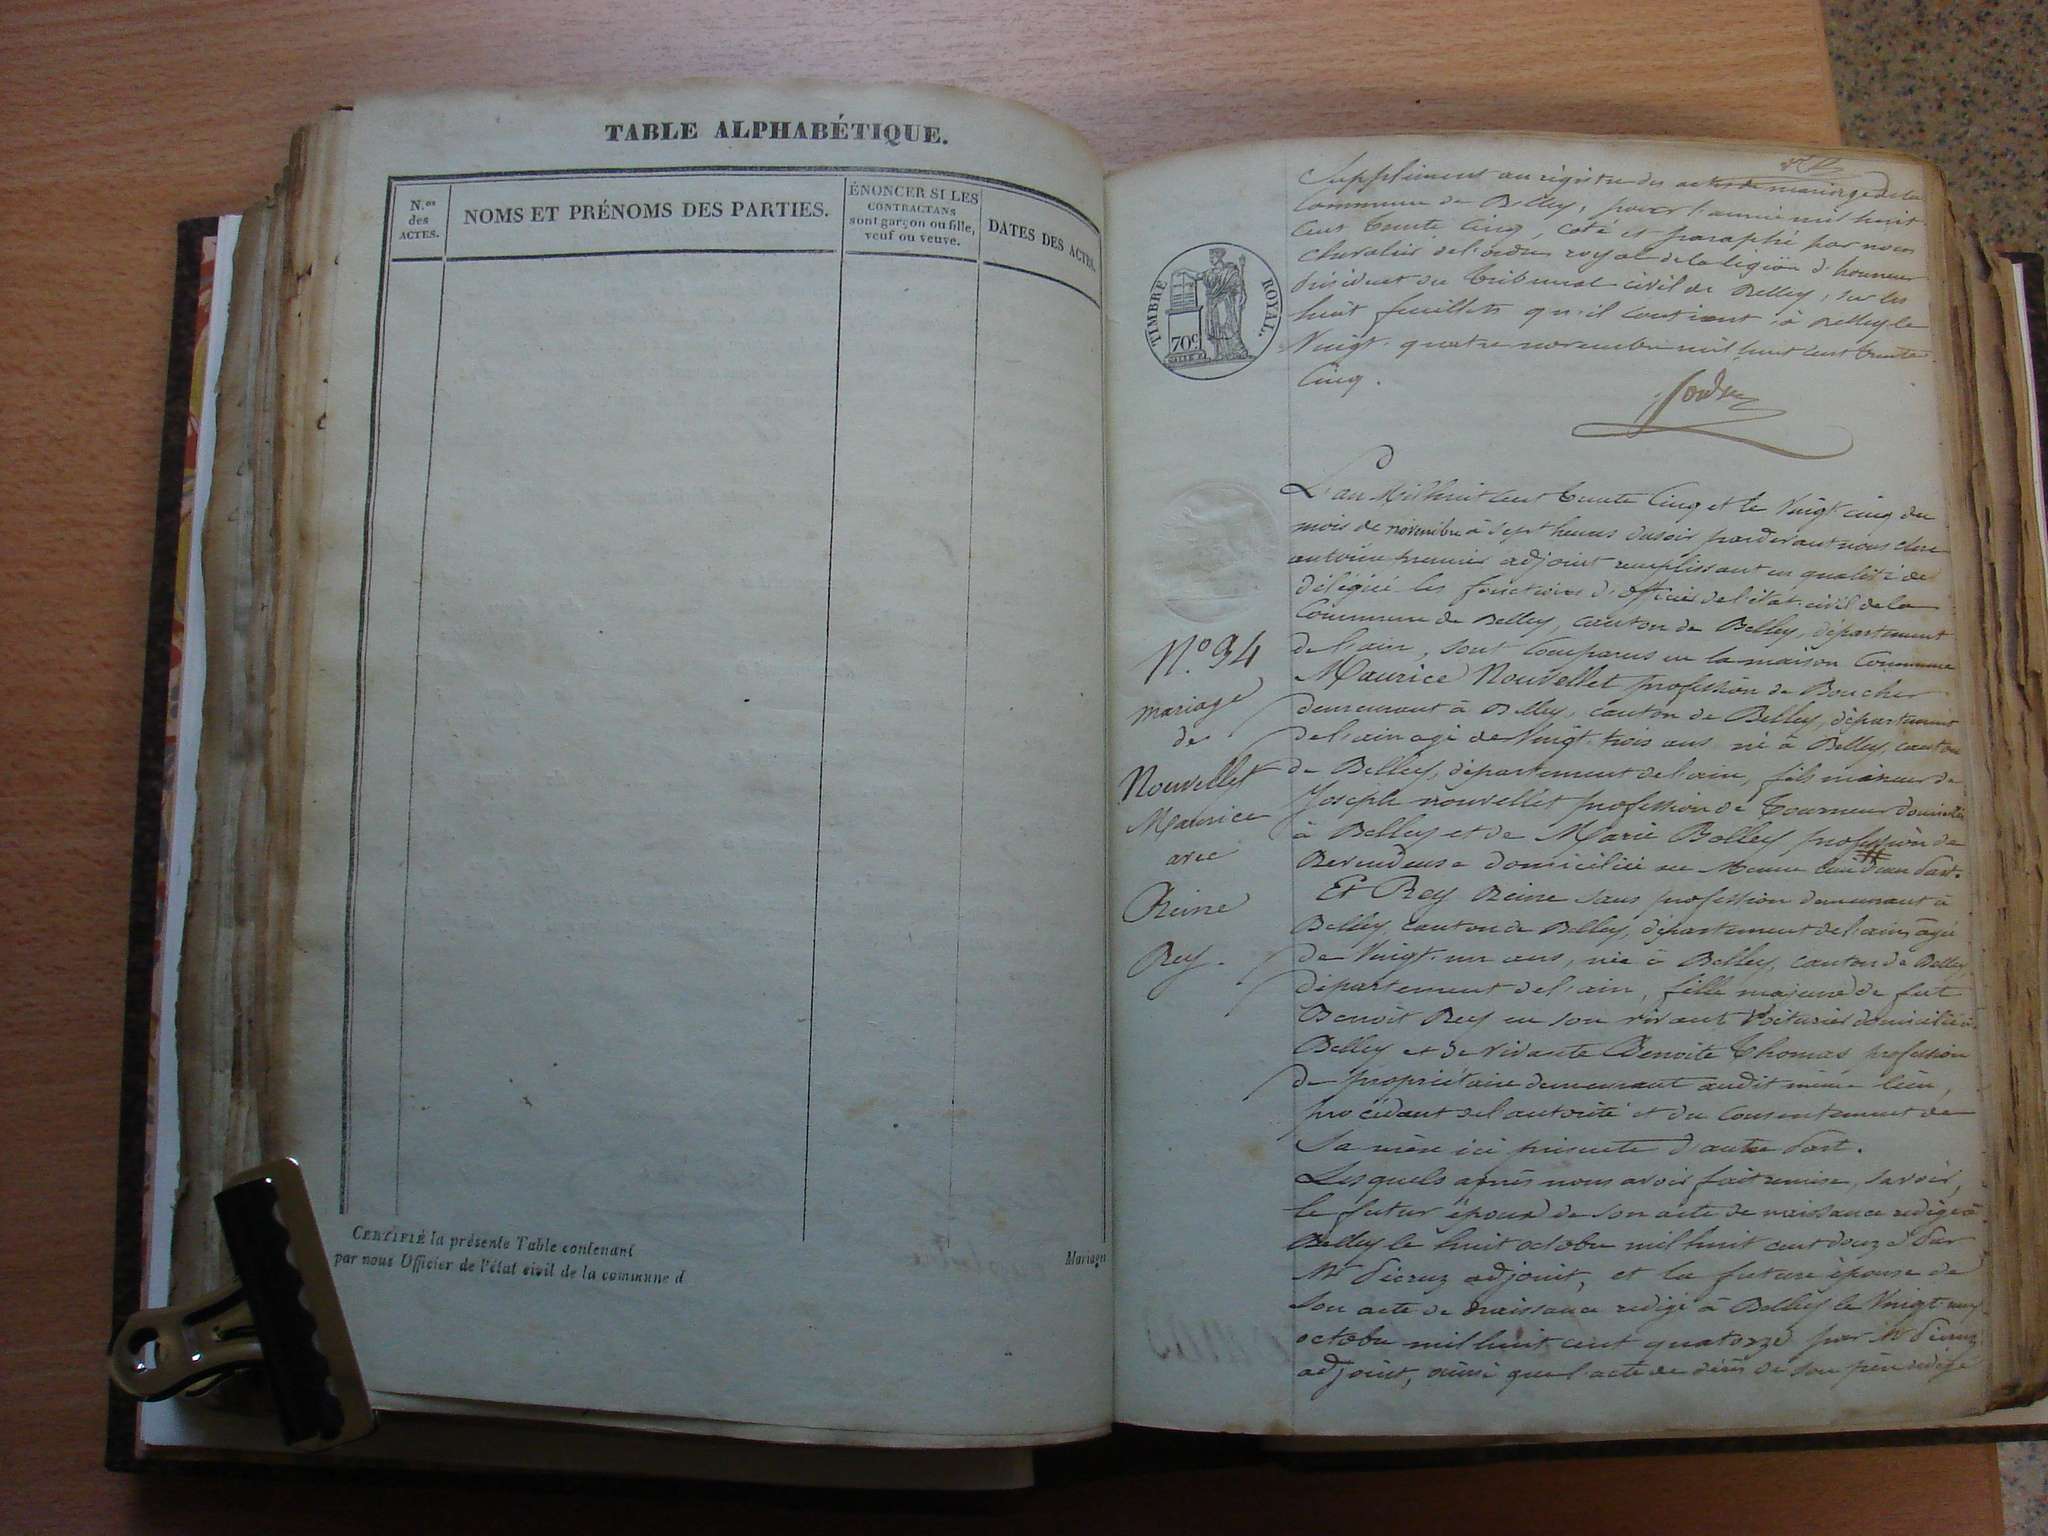 TABLE ALPHABÉTIQUE.
N.os
des
ACTES.
NOMS ET PRÉNOMS DES PARTIES.
ÉNONCER SI LES
CONTRACTANS
sont garçon ou fille,
veuf ou veuve.
DATES DES ACTES.
CERTIFIÉ la présente Table contenant
par nous Officier de l'état civil de la commune d
Mariages
Supplément au registre des actes de mariage de la
Commune de Belley, pour l'année mil huit
Cent trente Cinq, coté et paraphé par nous
chevalier de l'ordre royal de la légion d'honneur
président du tribunal civil de Belley, sur les
huit feuillets qu'il contient, à Belley le
Vingt-quatre novembre mil huit cent trente
Cinq.
TIMBRE ROYAL.
70c
L'an Mil huit cent trente Cinq et le Vingt cinq du
mois de novembre à sept heures du soir pardevant nous
antoine premier adjoint remplissant en qualité de
délégué les fonctions d'officier de l'état civil de la
Commune de Belley, canton de Belley, département
de l'ain, sont comparus en la maison Commune
Maurice Nouvellet profession de Boucher
demeurant à Belley, canton de Belley, département
de l'ain agé de Vingt-trois ans né à Belley, canton
de Belley, département de l'ain, fils mineur de
Joseph nouvellet profession de Tourneur domicilié
à Belley et de Marie Bolley profession de
Revendeuse domiciliée au Meme lieu d'un Part.
Et Rey Reine sans profession demeurant à
Belley, canton de Belley, département de l'ain, agée
de Vingt-un ans, née à Belley, canton de Belley
département de l'ain, fille majeure de fut
Benoit Rey en son vivant Voiturier domicilié à
Belley et de vivante Benoite Thomas profession
de propriétaire demeurant audit même lieu,
procédant de l'autorité et du Consentement de
Sa mère ici présente d'autre Part.
Lesquels après nous avoir fait remise, savoir,
le futur époux de son acte de naissance rédigé à
Belley le huit octobre mil huit cent douze Par
Mr Pécruz adjoint, et la future épouse de
Son acte de naissance rédigé à Belley le Vingt-neuf
octobre mil huit cent quatorze par Mr
adjoint, ainsi que l'acte de décès de son père rédigé
N.o 94
mariage
de
Nouvellet
Maurice
avec
Reine
Rey.